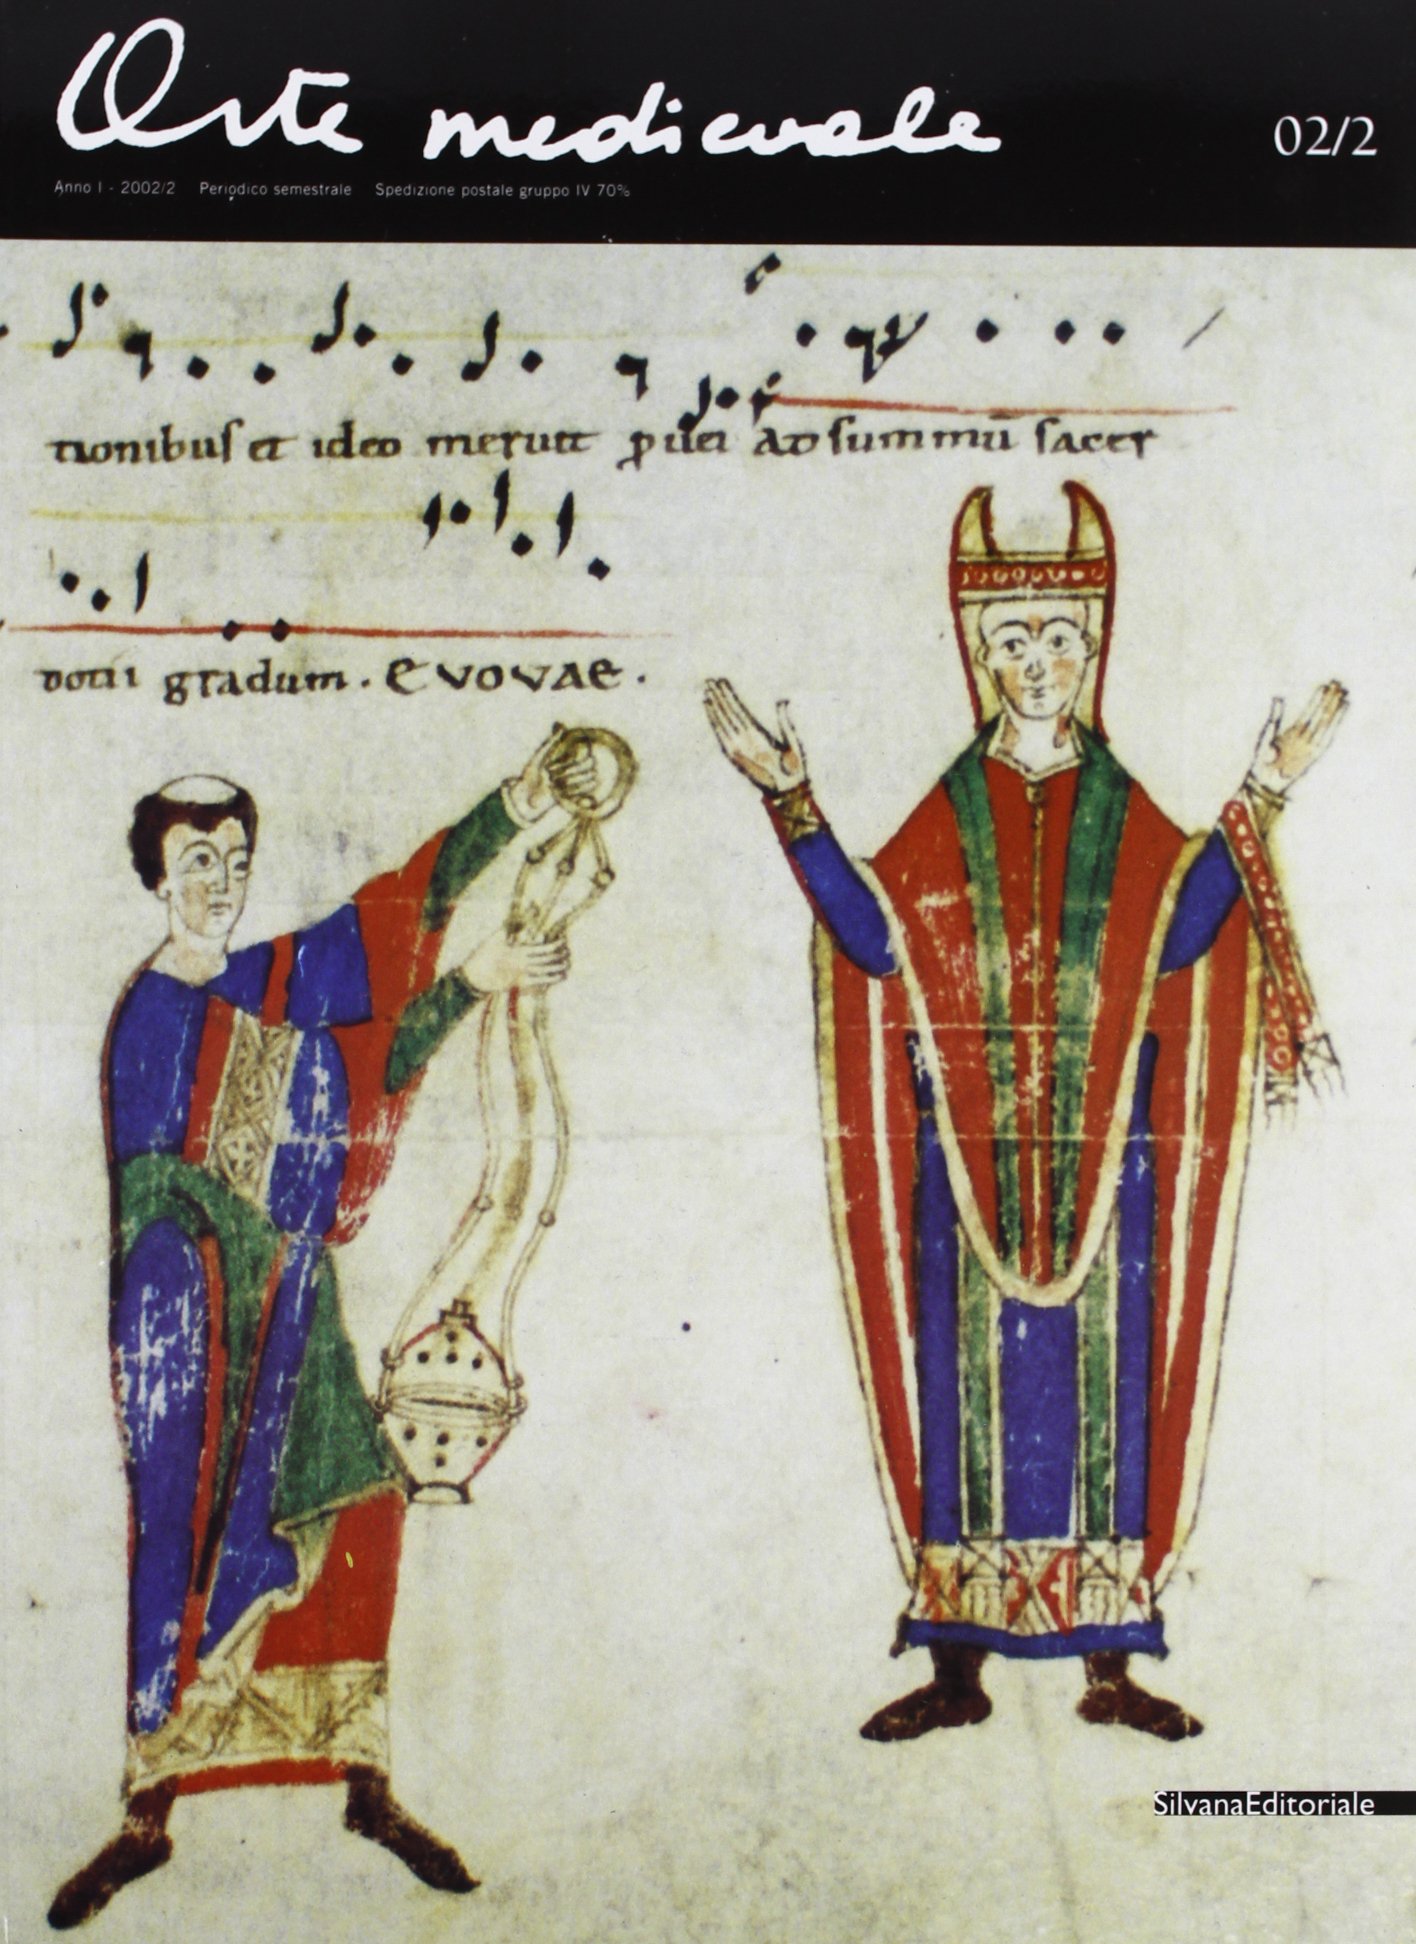 Arte medievale
02/2
Anno I - 2002/2 Periodico semestrale Spedizione postale gruppo IV 70%
tionibus et ideo meruit p uei ad summū sacer
dotii gradum. EVOVAE.
SilvanaEditoriale